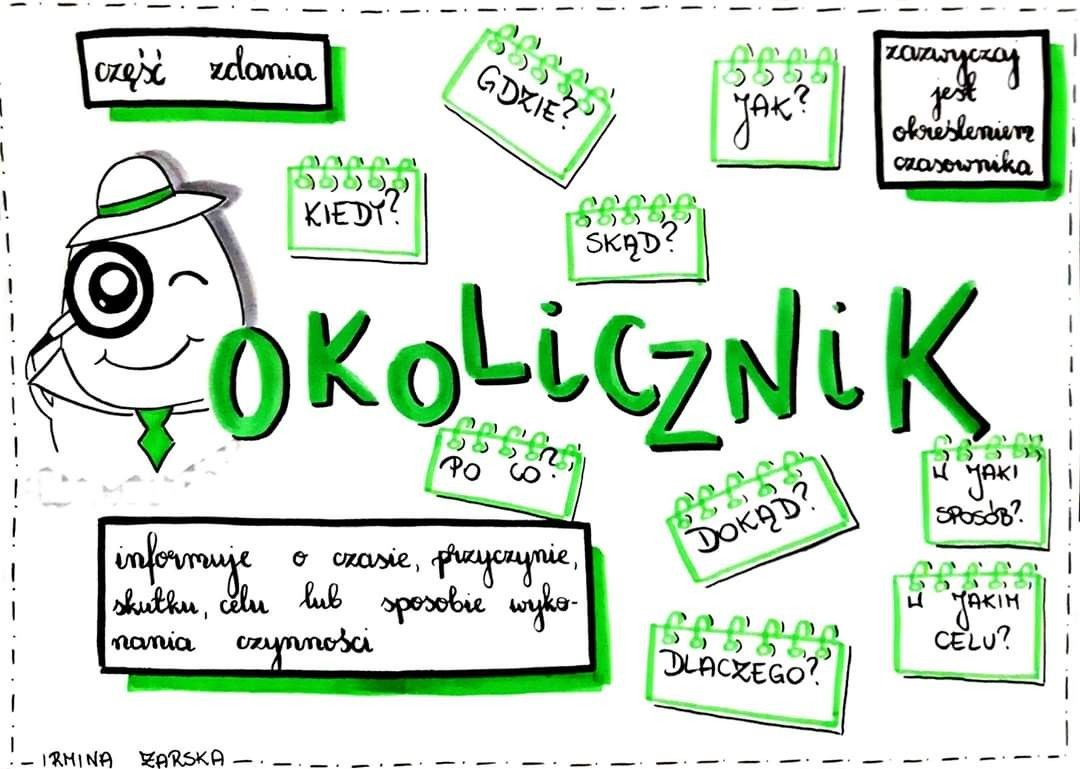 część zdania
GDZIE?
JAK?
zazwyczaj
jest
określeniem
czasownika
KIEDY?
SKĄD?
OKOLICZNIK
PO CO?
DOKĄD?
W JAKI
SPOSÓB?
informuje o czasie, przyczynie,
skutku, celu lub sposobie wyko-
nania czynności
W JAKIM
CELU?
DLACZEGO?
IRMINA ŻARSKA